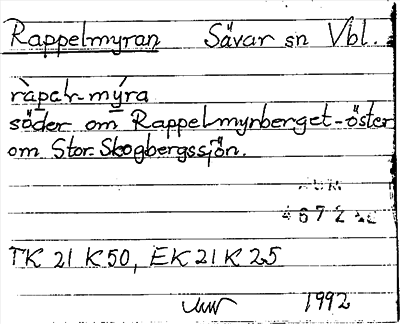 Rappelmyran Sävar sn Vbl.
ràpal-mýra
söder om Rappelmyrberget-öster
om Stor-Skogbergssjön.
4672
TK 21 K 50, EK 21 K 25
1992